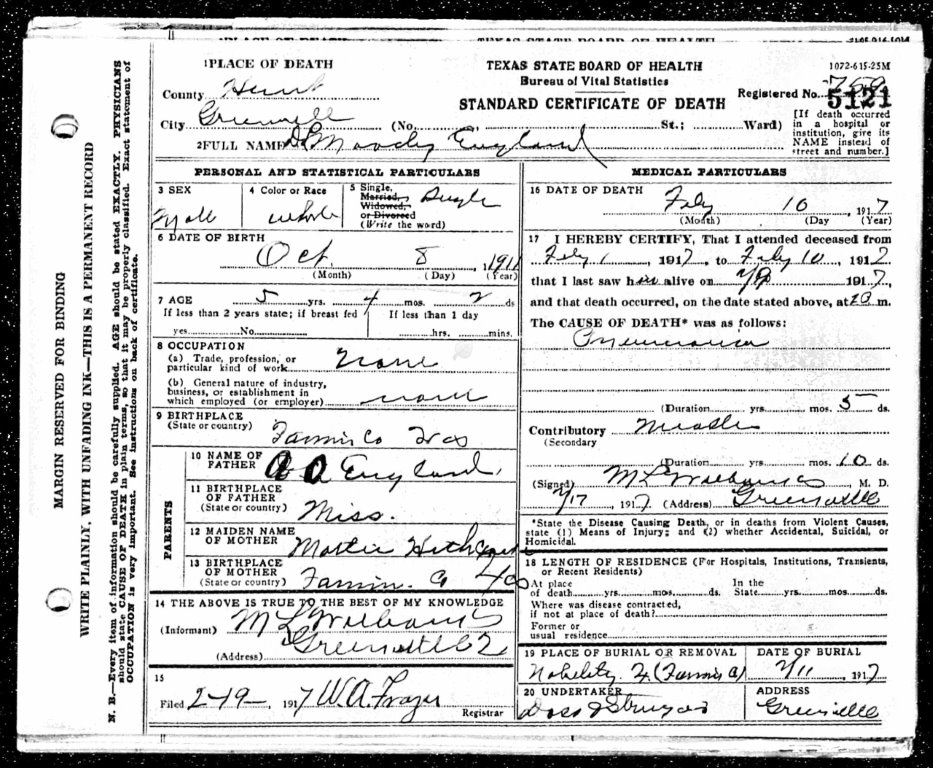 TEXAS STATE BOARD OF HEALTH
1 PLACE OF DEATH
TEXAS STATE BOARD OF HEALTH
1072-615-25M
Bureau of Vital Statistics
County Hunt
STANDARD CERTIFICATE OF DEATH
Registered No. 769
5121
City Greenville (No. St.; Ward)
[If death occurred in a hospital or institution, give its NAME instead of street and number.]
2 FULL NAME Moody England
PERSONAL AND STATISTICAL PARTICULARS
3 SEX
Male
4 Color or Race
white
5 Single, Married, Widowed, or Divorced (Write the word)
Single
6 DATE OF BIRTH
Oct 8 1911
(Month) (Day) (Year)
7 AGE 5 yrs. 4 mos. 2 ds
If less than 2 years state; if breast fed
If less than 1 day
yes No. hrs. mins.
8 OCCUPATION
(a) Trade, profession, or
particular kind of work None
(b) General nature of industry,
business, or establishment in
which employed (or employer) none
9 BIRTHPLACE
(State or country) Fannin Co Tex
PARENTS
10 NAME OF FATHER A A England
11 BIRTHPLACE OF FATHER
(State or country) Miss.
12 MAIDEN NAME OF MOTHER Mattie
13 BIRTHPLACE OF MOTHER
(State or country) Fannin Co
14 THE ABOVE IS TRUE TO THE BEST OF MY KNOWLEDGE
(Informant) M L Williams
(Address) Greenville
15
Filed 2-19- 1917 W.A. Frazer
Registrar
MEDICAL PARTICULARS
16 DATE OF DEATH
Feby 10 1917
(Month) (Day (Year)
17 I HEREBY CERTIFY, That I attended deceased from
Feby 1 1917, to Feby 10, 1917
that I last saw him alive on 1917,
and that death occurred, on the date stated above, at m.
The CAUSE OF DEATH* was as follows:
Pneumonia
(Duration yrs. mos. 5 ds.
Contributory Measles
(Secondary
(Duration yrs. mos. 10 ds.
(Signed) M L Williams M. D.
2/17 1917 (Address) Greenville
*State the Disease Causing Death, or in deaths from Violent Causes,
state (1) Means of Injury; and (2) whether Accidental, Suicidal, or
Homicidal.
18 LENGTH OF RESIDENCE (For Hospitals, Institutions, Transients,
or Recent Residents)
At place of death yrs. mos. ds. In the State yrs. mos. ds.
Where was disease contracted,
if not at place of death?
Former or
usual residence
19 PLACE OF BURIAL OR REMOVAL
DATE OF BURIAL
2/11, 1917
20 UNDERTAKER
ADDRESS
Greenville
MARGIN RESERVED FOR BINDING
WRITE PLAINLY, WITH UNFADING INK—THIS IS A PERMANENT RECORD
N. B.—Every item of information should be carefully supplied. AGE should be stated EXACTLY. PHYSICIANS
should state CAUSE OF DEATH in plain terms, so that it may be properly classified. Exact statement of
OCCUPATION is very important. See instructions on back of certificate.